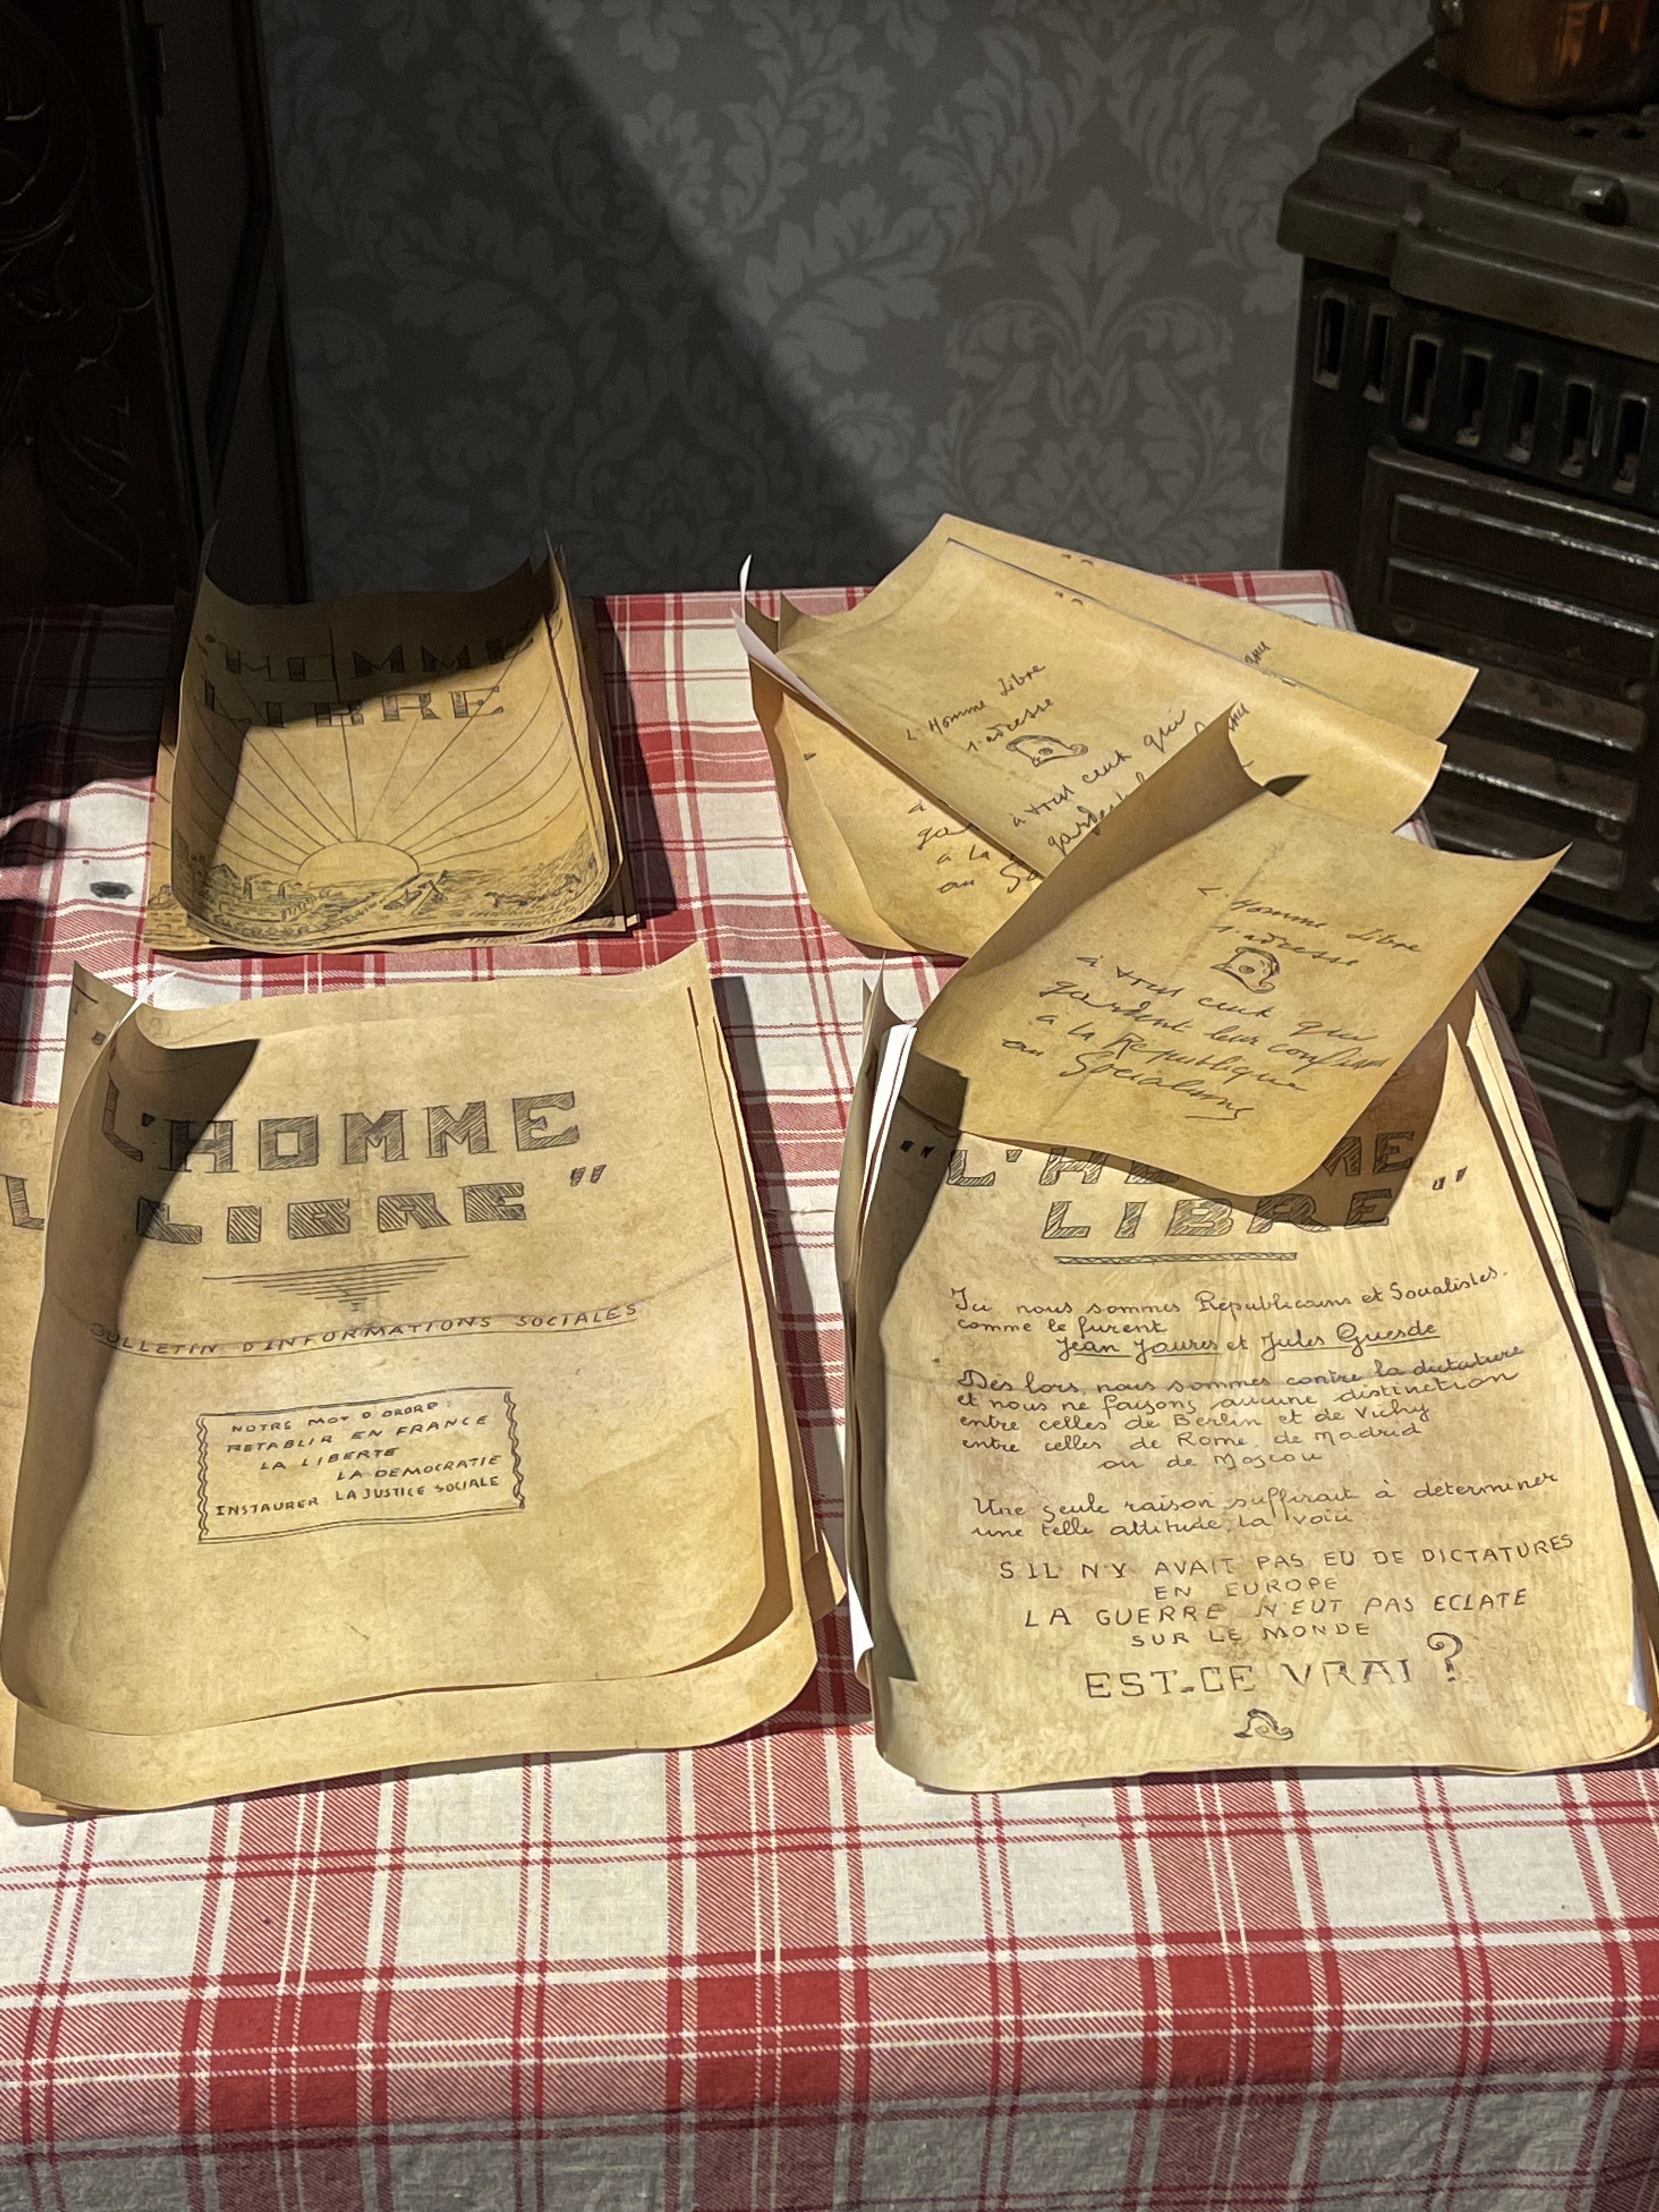 L'HOMME
LIBRE
L'Homme Libre
s'adresse
à tous ceux qui
L'Homme Libre
s'adresse
à tous ceux qui
gardent leur
à la République
au Socialisme
L'HOMME
LIBRE"
BULLETIN D'INFORMATIONS SOCIALES
NOTRE MOT D'ORDRE:
RETABLIR EN FRANCE
LA LIBERTE
LA DEMOCRATIE
INSTAURER LA JUSTICE SOCIALE
"L'HOMME
LIBRE"
Ici nous sommes Républicains et Socialistes.
comme le furent
Jean Jaures et Jules Guesde
Dès lors, nous sommes contre la dictature
et nous ne faisons aucune distinction
entre celles de Berlin et de Vichy
entre celles de Rome, de Madrid
ou de Moscou
Une seule raison suffirait à déterminer
une telle attitude, la voici
S'IL N'Y AVAIT PAS EU DE DICTATURES
EN EUROPE
LA GUERRE N'EUT PAS ECLATE
SUR LE MONDE
EST-CE VRAI ?